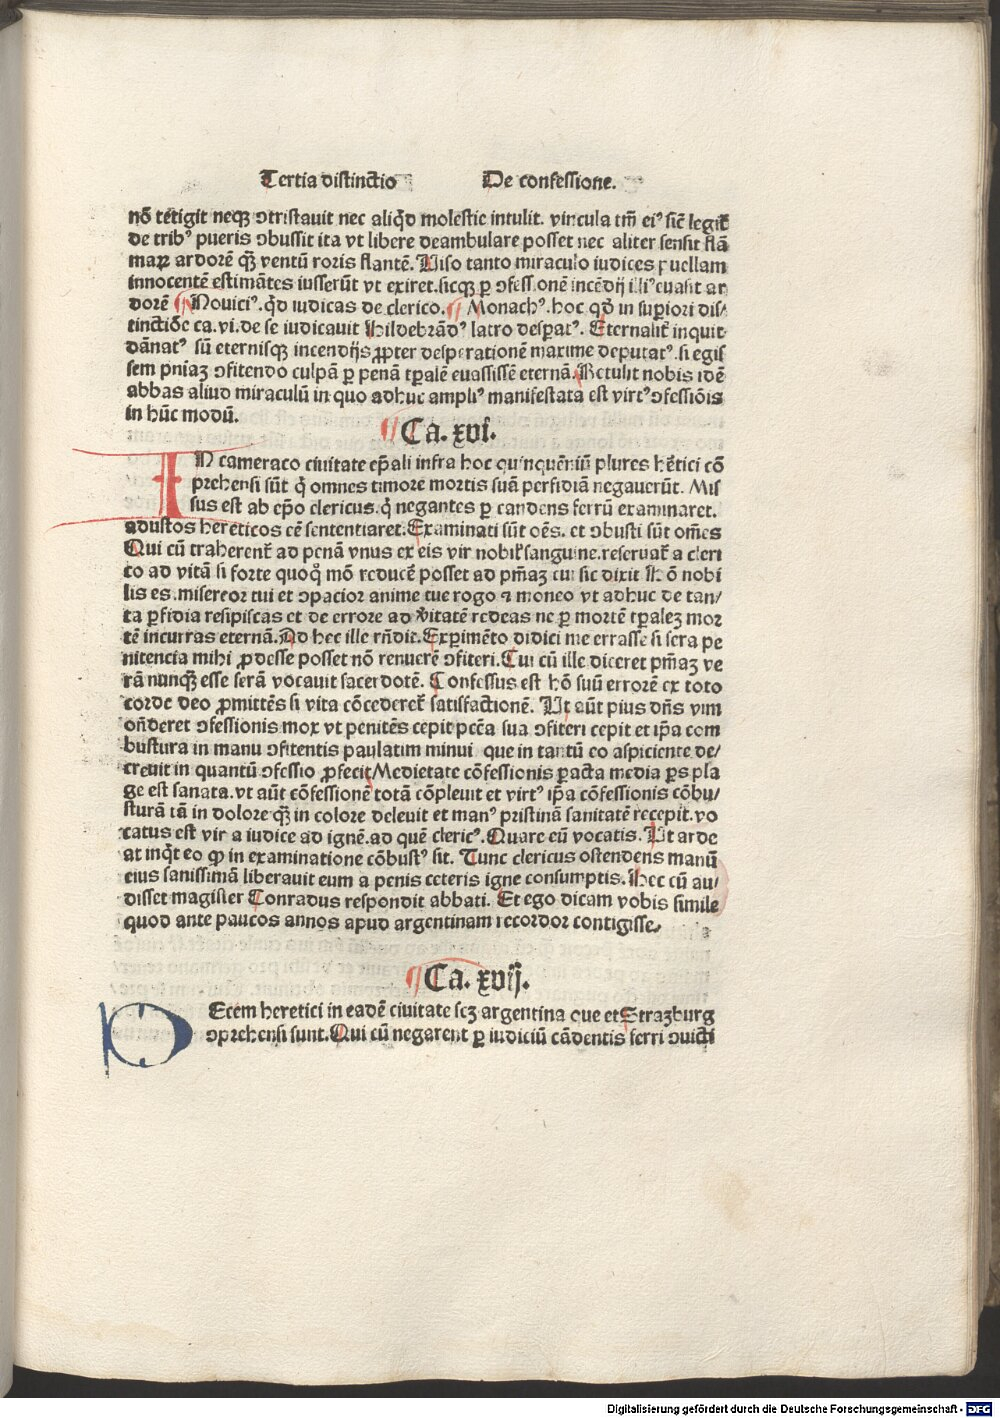 Tertia distinctio De confessione.
nō tetigit neqꝫ ↄtristauit nec aliqd̄ molestie intulit. vincula tm̄ eiꝰ sic̄ legit̄
de tribꝰ pueris ↄbussit ita vt libere deambulare posset nec aliter sensit flā
maꝝ ardorē qꝫ ventū roris flantē. Uiso tanto miraculo iudices puellam
innocentē estimātes iusserūt vt exiret. sicqꝫ ꝑ ↄfessionē incēdij illiꝰ euasit ar
dorē ¶ Nouiciꝰ. qd̄ iudicas de clerico. ¶ Monachꝰ. hoc qd̄ in suꝑiori dis/
tinctiōe ca. vi. de se iudicauit Hildebrādꝰ latro desꝑatꝰ. Eternalit̄ inquit
dānatꝰ sū eternisqꝫ incendijs ꝓpter desperationē maxime deputatꝰ. si egis
sem pniaꝫ ↄfitendo culpā ꝑ penā tꝑalē euassissē eternā. Retulit nobis idē
abbas aliud miraculū in quo adhuc ampliꝰ manifestata est virtꝰ ↄfessiōis
in hūc modū.
¶ Ca. xvi.
IN cameraco ciuitate ep̄ali infra hoc quinquēniū plures hētici cō
prehensi sūt q̄ omnes timore mortis suā perfidiā negauerūt. Mis
sus est ab ep̄o clericus. q̄ negantes ꝑ candens ferrū examinaret.
adustos hereticos eē sententiaret. Examinati sūt oēs. et ↄbusti sūt om̄es
Qui cū traherent̄ ad penā vnus ex eis vir nobil̄ sanguine. reseruat̄ a cleri
co ad vitā si forte quoq̄ mō reducē posset ad pm̄aꝫ cui sic dixit Hō nobi
lis es. misereor tui et ↄpacior anime tue rogo ⁊ moneo vt adhuc de tan/
ta ꝑfidia resipiscas et de errore ad v̄itatē redeas ne ꝑ mortē tꝑaleꝫ mor
tē incurras eternā. Ad hec ille rn̄dit. Exꝑimēto didici me errasse si sera pe
nitencia mihi ꝓdesse posset nō renuerē ↄfiteri. Cui cū ille diceret pm̄aꝫ ve
rā nunqꝫ esse serā vocauit sacerdotē. Confessus est hō suū errorē ex toto
corde deo ꝓmittēs si vita cōcederet̄ satisfactionē. Ut aūt pius dn̄s vim
on̄deret ↄfessionis mox vt penitēs cepit pctā sua ↄfiteri cepit et ip̄a com
bustura in manu ↄfitentis paulatim minui que in tantū eo aspiciente de/
creuit in quantū ↄfessio ꝓfecit Medietate cōfessionis ꝑacta media ꝑs pla
ge est sanata. vt aūt cōfessionē totā cōpleuit et virtꝰ ip̄a cōfessionis cōbu/
sturā tā in dolore qꝫ in colore deleuit et manꝰ pristinā sanitatē recepit. vo
catus est vir a iudice ad ignē. ad quē clericꝰ. Quare eū vocatis. Ut arde
at inq̄t eo ꝙ in examinatione cōbustꝰ sit. Tunc clericus ostendens manū
eius sanissimā liberauit eum a penis ceteris igne consumptis. Hec cū au/
disset magister Conradus respondit abbati. Et ego dicam vobis simile
quod ante paucos annos apud argentinam recordor contigisse.
¶ Ca. xvij.
DEcem heretici in eadē ciuitate scꝫ argentina que et Strazburg
ↄprehensi sunt. Qui cū negarent ꝑ iudiciū cādentis ferri ↄuicti
Digitalisierung gefördert durch die Deutsche Forschungsgemeinschaft - DFG